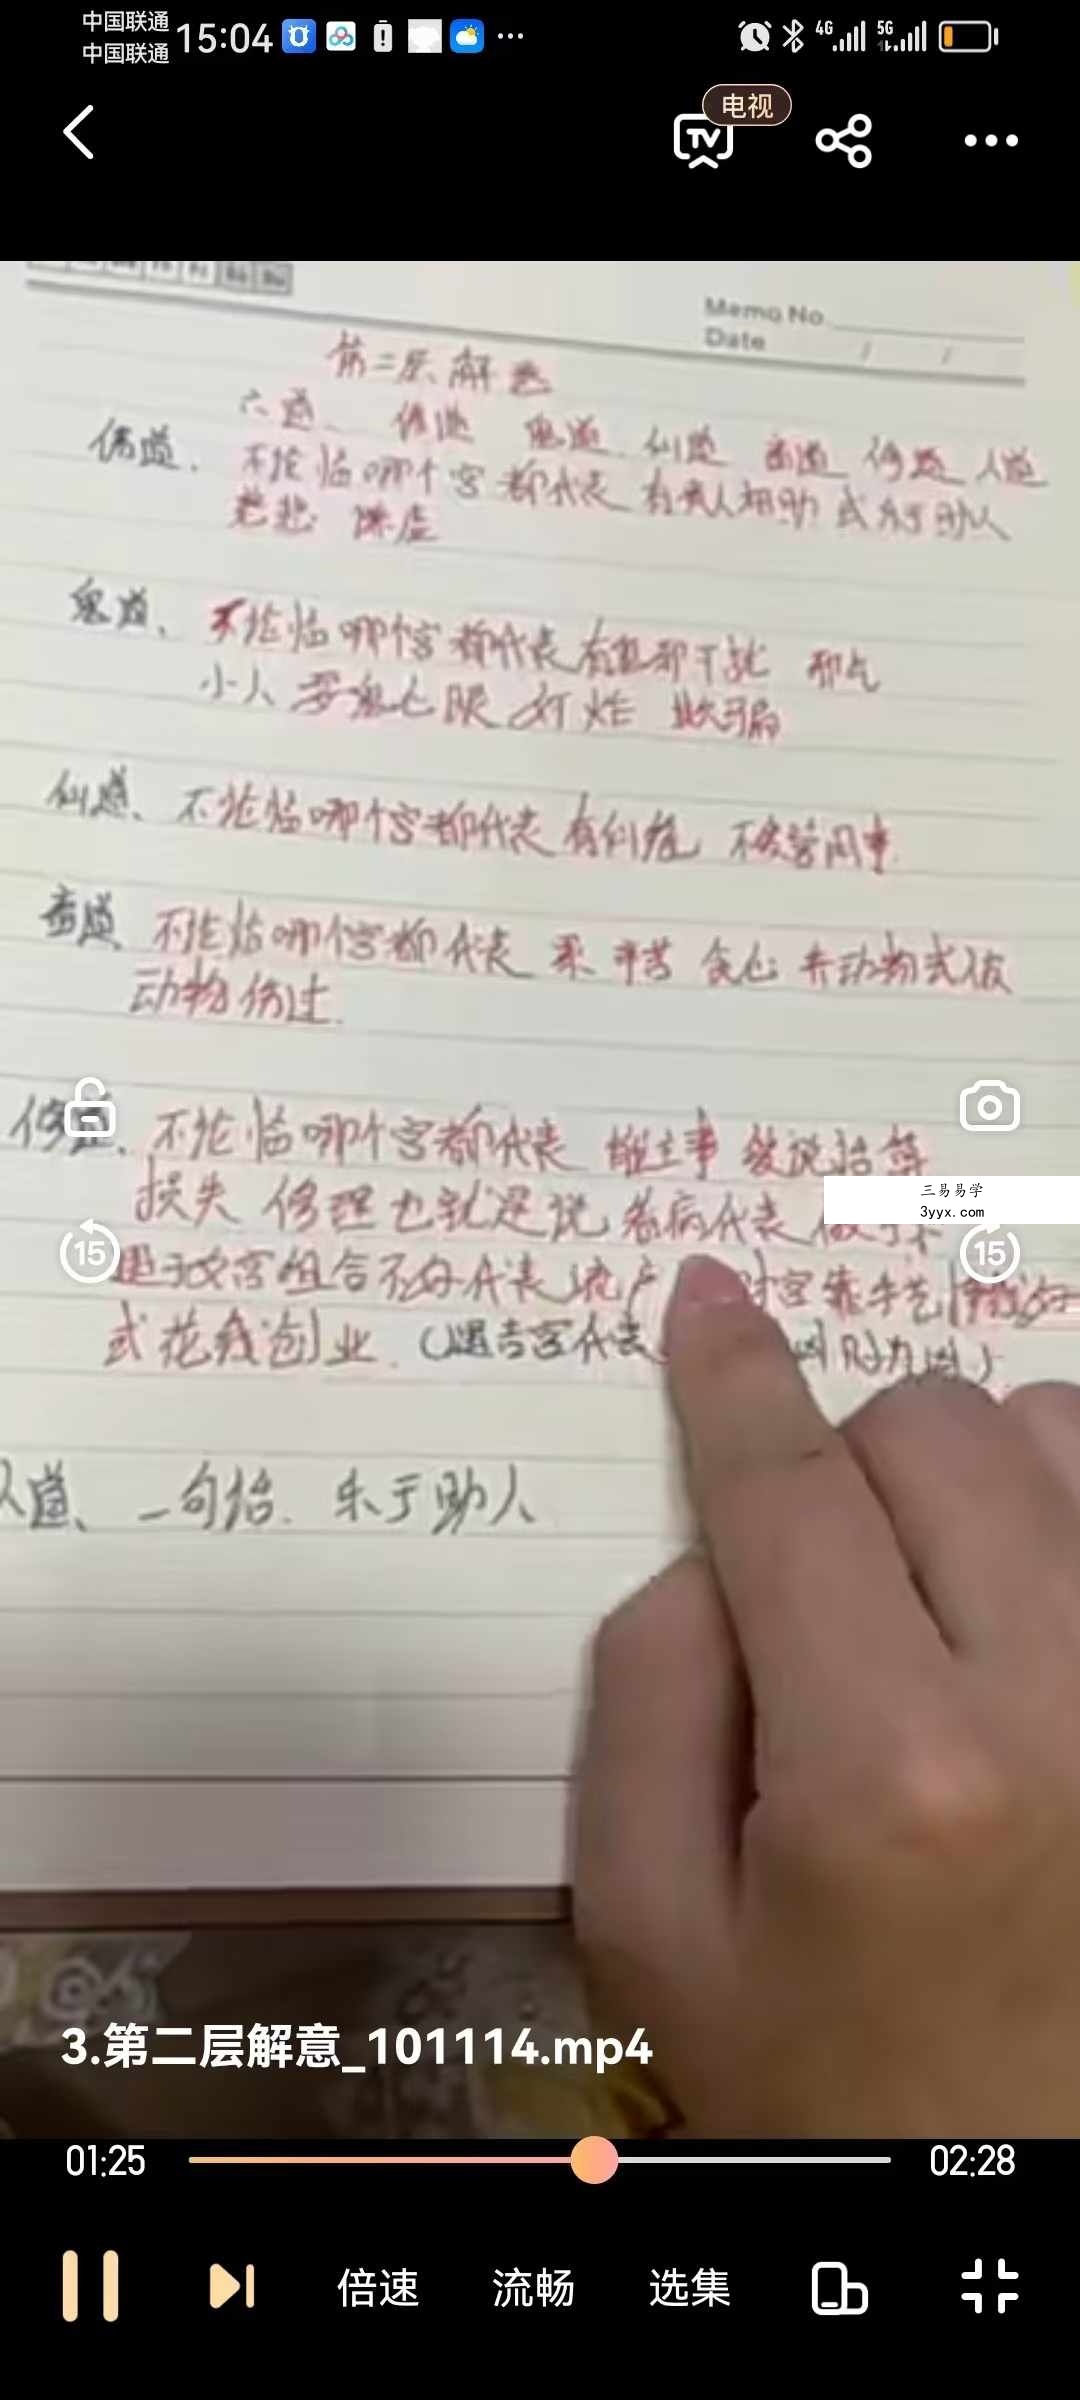 中国联通
中国联通
15:04
4G
5G
电视
TV
Memo No
Date / /
第二层解意
六道、佛道 鬼道 仙道 畜道 修道 人道
佛道、不论临哪个宫都代表 有贵人相助 或乐于助人
谦虚
鬼道、不论临哪个宫都代表 干扰
小人 耍鬼心眼 奸诈 欺骗
仙道、不论临哪个宫都代表 有仙缘 不爱管闲事
畜道 不论临哪个宫都代表 贪心 动物或被
动物伤过
修道、不论临哪个宫都代表
损失 修理也就是说 看病代表
遇子女宫组合不好代表流产 财宫靠手艺
或花钱创业.(遇吉宫代表
人道、一句话. 乐于助人
三易易学
3yyx.com
15
15
3.第二层解意_101114.mp4
01:25
02:28
倍速
流畅
选集